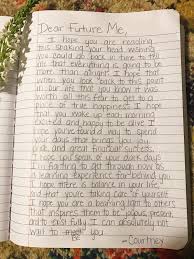 Dear Future Me,
I hope you are reading
this shaking your head wishing
you could go back in time to tell
me that everything is going to be
more than alright. I hope that
when you look back to this point
in our life that you know it was
worth all this fear to get to a
place of true happiness. I hope
that you wake up each morning
excited about the day. I hope
you've found a way to spend
your days that brings you
and great financial success.
I hope you speak of our dark days
I'm fighting to get through now as
a learning experience far behind you.
I hope there is balance in your life,
and that you're taking care of yourself.
I hope you are a beaming light to others
that inspires them to be joyous, present,
and to exist fully. I can absolutely not
wait to meet you
Be
-Courtney